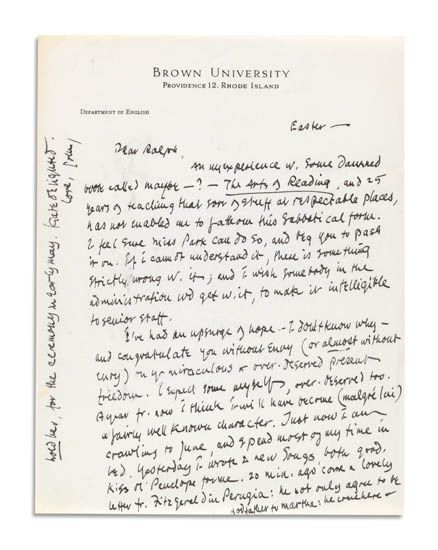 BROWN UNIVERSITY
PROVIDENCE 12, RHODE ISLAND
DEPARTMENT OF ENGLISH
Easter —
Dear Ralph,
an my experience w. some Damned
book called maybe — ? — The Arts of Reading, and 25
years of teaching that sort of stuff at respectable places,
has not enabled me to fathom this Sabbatical form.
I feel sure Miss Park can do so, and beg you to pass
it on. If I cannot understand it, there is something
strictly wrong w. it; and I wish somebody in the
administration wd get w. it, to make it intelligible
to senior staff.
I've had an upsurge of hope – I don't know why –
and congratulate you without envy (or almost without
envy) on yr miraculous or over-deserved present
freedom. I expect some myself, over-deserved too.
A year fr. now I think I will have become (malgré lui)
a fairly well known character. Just now I am
crawling to June, and spend most of my time in
bed. Yesterday I wrote 2 new Songs, both good,
Kiss of Penelope for me. 20 min. ago came a lovely
letter fr. Fitzgerald in Perugia: he not only agrees to be
godfather to Martha: he comes here &
hold her, for the ceremony in early May. Kate delighted.
Love, John